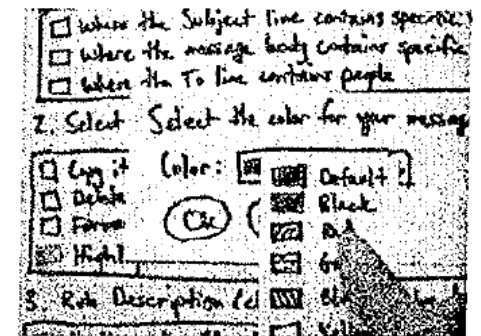 where the Subject line contains specific
where the message body contains specific
where the To line contains people
2. Select Select the color for your message
Copy it Color: Default
Delete Black
Forwa Ok
Highl
3. Rule Description